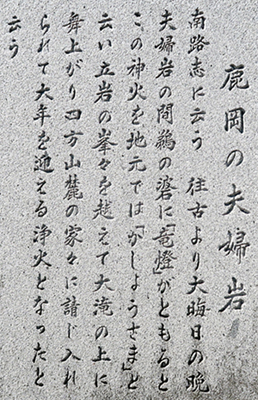 鹿岡の夫婦岩
南路志に云う 往古より大晦日の晩
夫婦岩の間鵜の碆に「竜燈」がともると
この神火を地元では「かしょうさま」と
云い立岩の峯々を越えて大滝の上に
舞上がり四方山麓の家々に請じ入れ
られて大年を迎える浄火となったと
云う